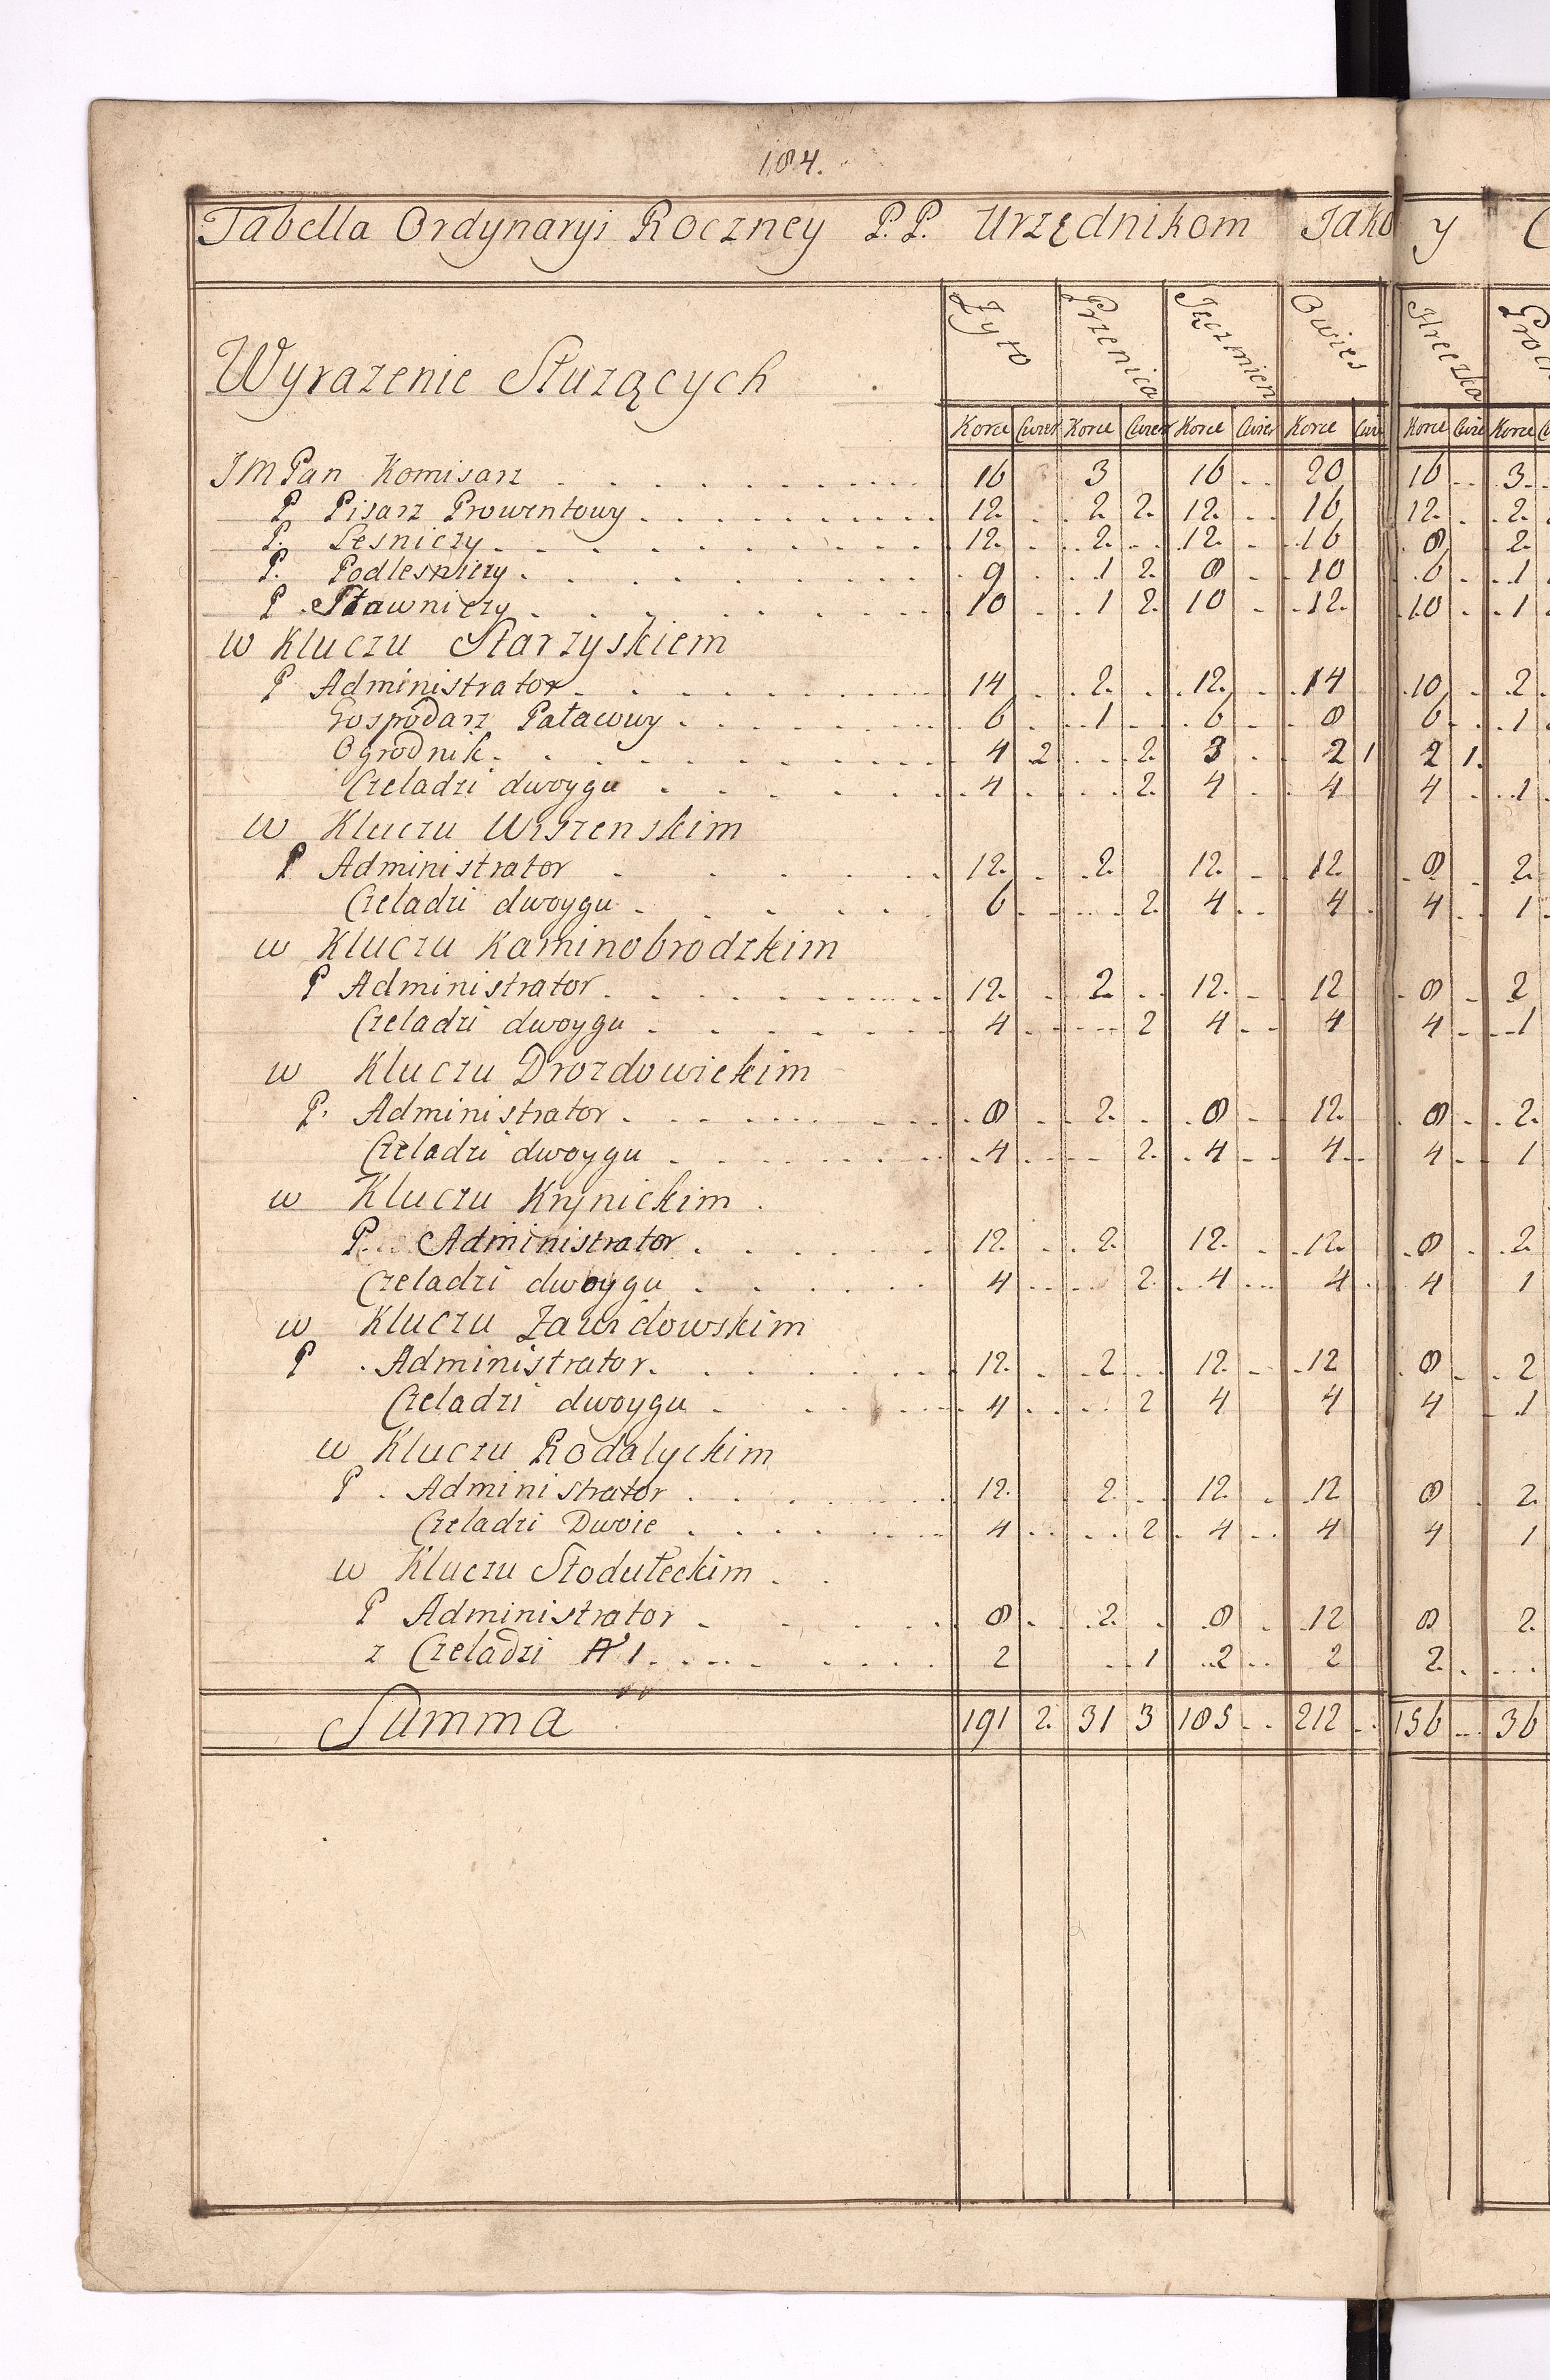 184.
Tabella Ordynaryi Roczney P.P. Urzędnikom Jako y
Wyrazenie Służących Zyto Przenica Jęczmien Owies Hreczka Groch
Korce Cwier Korce Cwier Korce Cwier Korce Cwie Korce Cwie Korce
JMPan Komisarz 16 3 16 20 16 3
P. Pisarz Prowentowy 12. 2. 2. 12. 16 12. 2.
P. Lesniczy 12. 2. 12. 16 8 2.
P. Podlesniczy 9 1 2. 8 10 6 1
P. Stawniczy 10 1 2. 10 12. 10 1
w Kluczu Starzyskiem
P Administrator 14 2. 12. 14 10 2.
Gospodarz Pałacowy 6 1 6 8 6 1
Ogrodnik 4 2 2. 3 2 1 2 1.
Czeladzi dwoygu 4 2. 4 4 4 1
w Kluczu Wiszenskim
P Administrator 12. 2. 12. 12. 8 2.
Czeladzi dwoygu 6 2. 4 4 4 1
w Kluczu Kaminobrodzkim
P Administrator 12. 2. 12. 12 8 2
Czeladzi dwoygu 4 2 4 4 4 1
w Kluczu Drozdowickim
P. Administrator 8 2. 8 12. 8 2.
Czeladzi dwoygu 4 2. 4 4 4 1
w Kluczu Krynickim
P. Administrator 12. 2. 12. 12. 8 2.
Czeladzi dwoygu 4 2. 4 4 4 1
w Kluczu Zawidowskim
P Administrator 12. 2 12. 12 8 2
Czeladzi dwoygu 4 2 4 4 4 1
w Kluczu Rodalyckim
P Administrator 12. 2. 12. 12 8 2.
Czeladzi Dwoie 4 2 4 4 4 1
w Kluczu Stodułeckim
P Administrator 8 2. 8 12 8 2.
z Czeladzi N 1 2 1 2 2 2.
Summa 191 2. 31 3 185 212 156 36